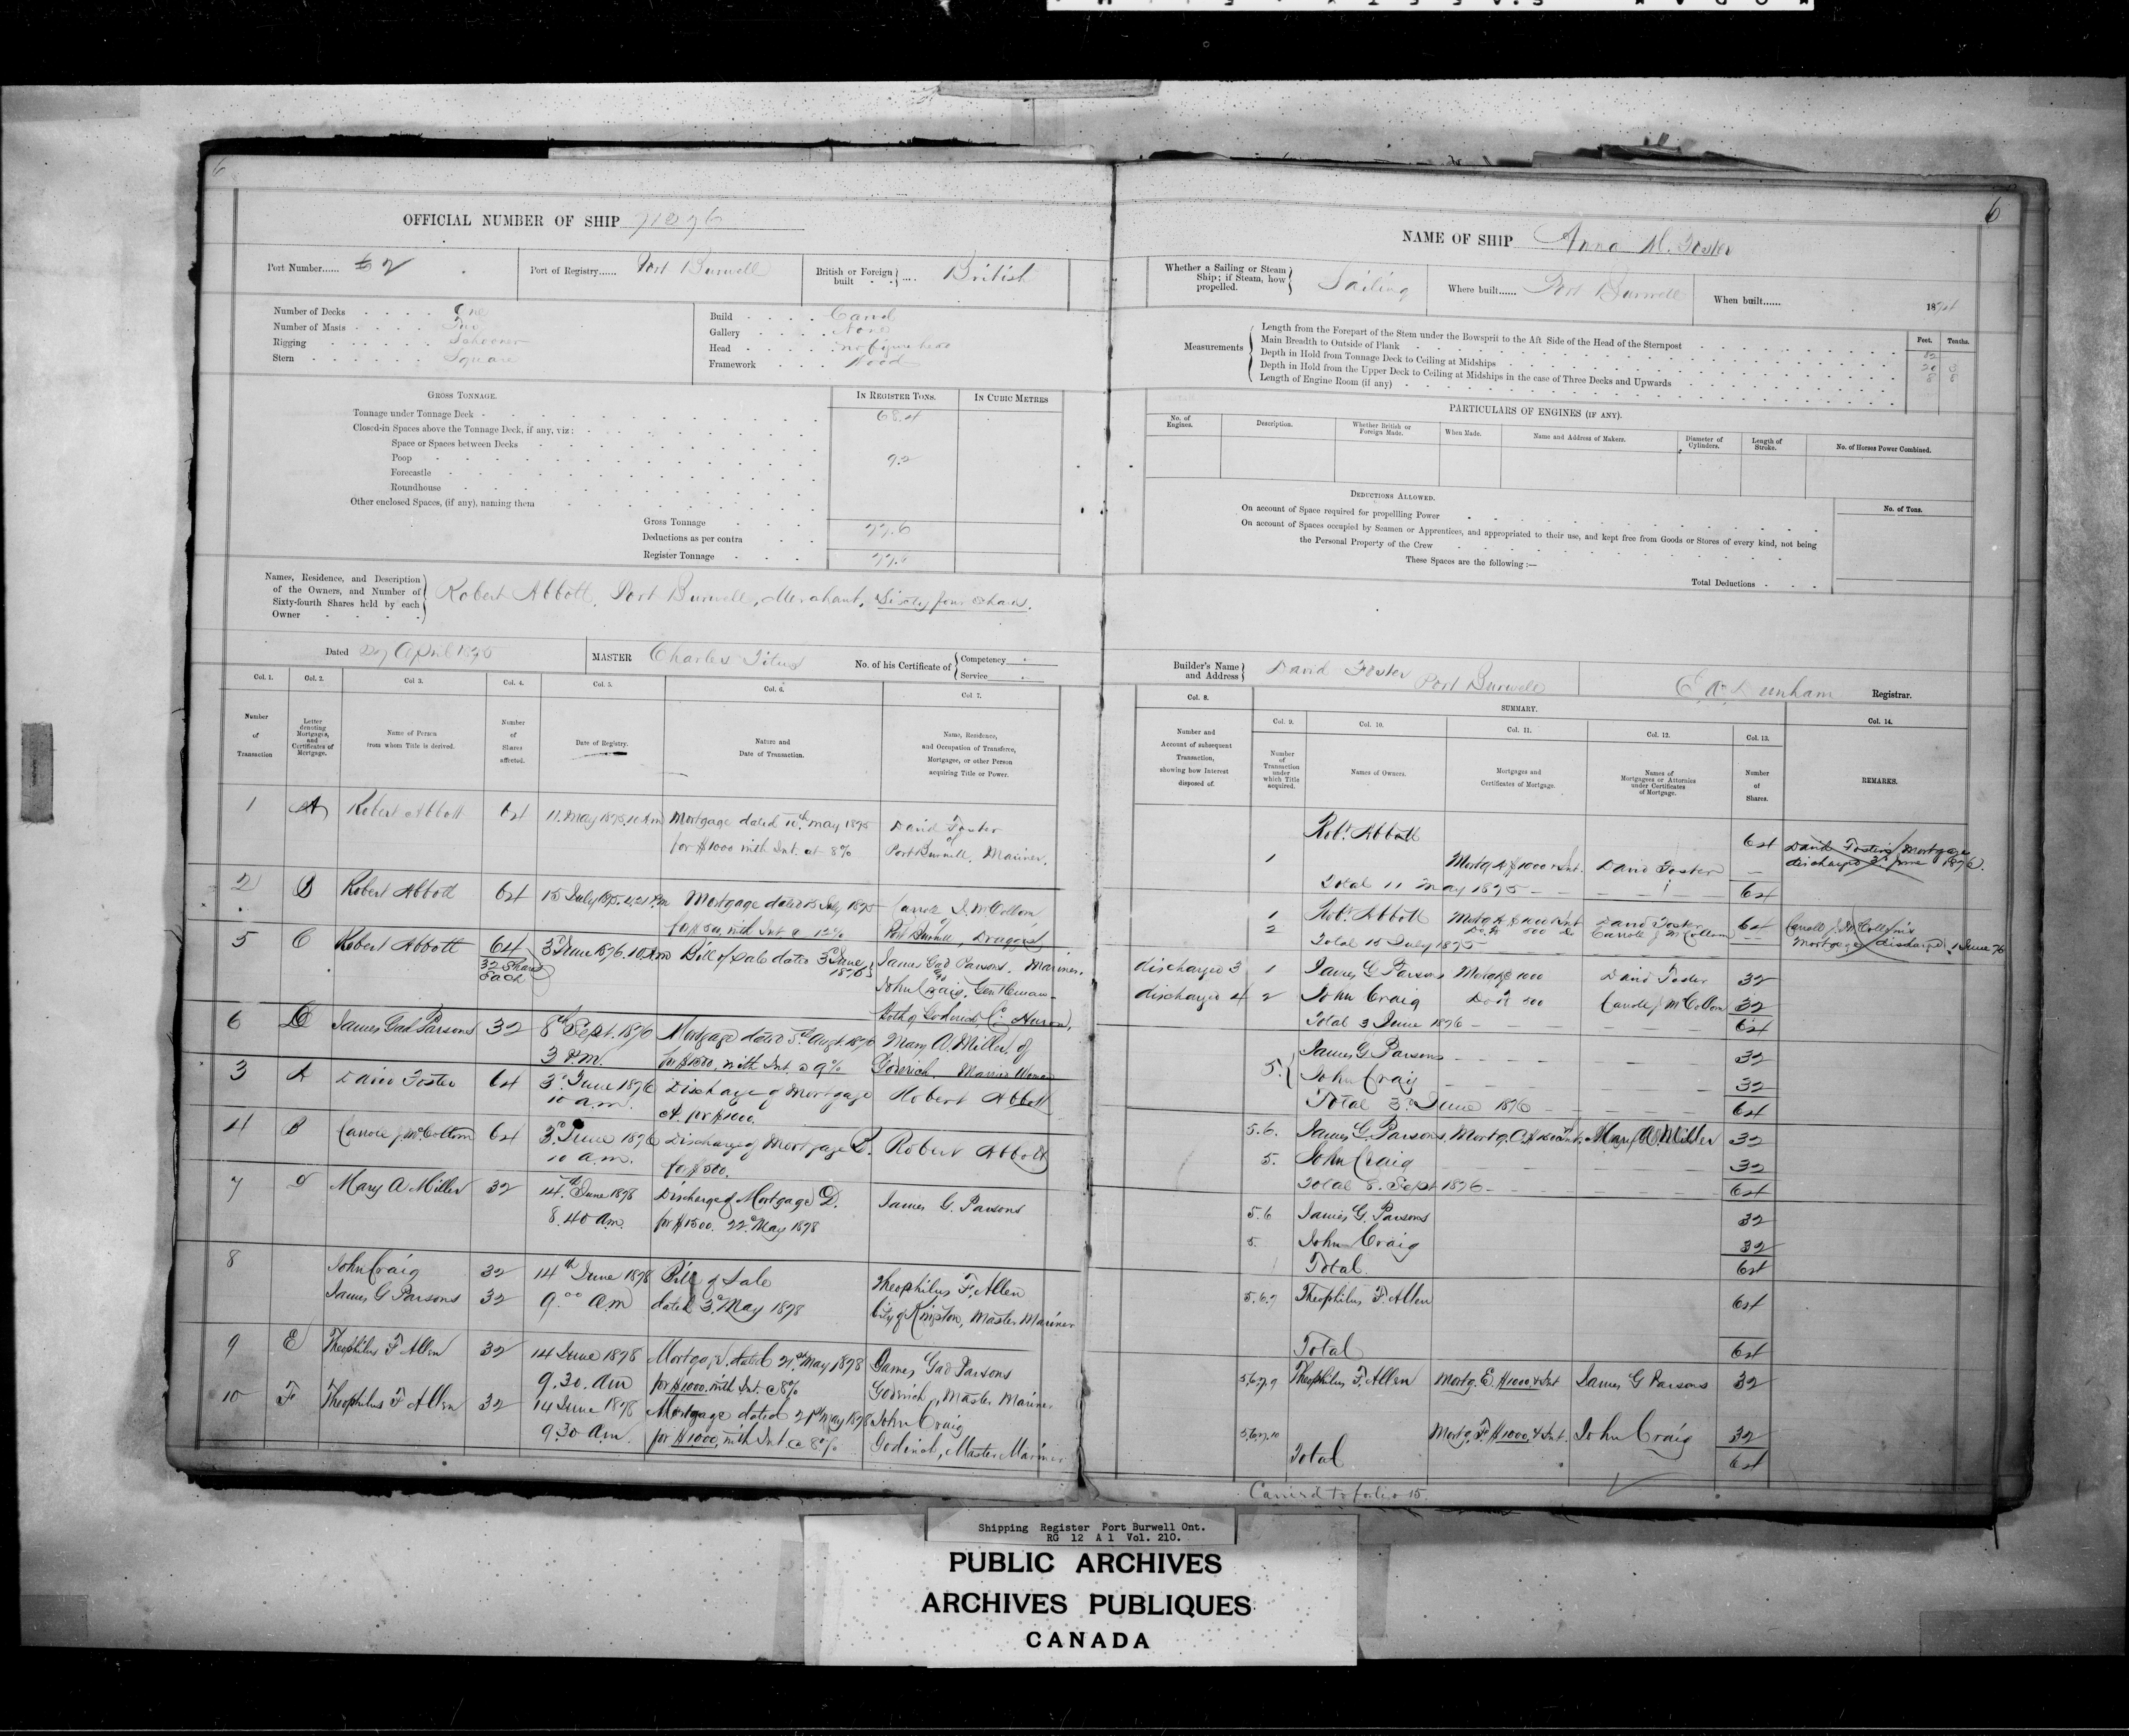 6
OFFICIAL NUMBER OF SHIP
Port Number...... 62
Port of Registry...... Port Burwell
British or Foreign built .... British
Number of Decks One
Number of Masts Two
Rigging Schooner
Stern Square
Build Carvel
Gallery None
Head no figure head
Framework Wood
GROSS TONNAGE.
IN REGISTER TONS.
IN CUBIC METRES
Tonnage under Tonnage Deck 68.4
Closed-in Spaces above the Tonnage Deck, if any, viz:
Space or Spaces between Decks
Poop 9.2
Forecastle
Roundhouse
Other enclosed Spaces, (if any), naming them
Gross Tonnage 77.6
Deductions as per contra
Register Tonnage 77.6
Names, Residence, and Description
of the Owners, and Number of
Sixty-fourth Shares held by each
Owner
Robert Abbott, Port Burwell, Merchant, Sixty four Shares.
Dated April 1875
MASTER Charles Titus
No. of his Certificate of Competency
Service
Col. 1. Col. 2. Col 3. Col. 4. Col. 5. Col. 6. Col 7.
Number of Transaction
Letter denoting Mortgages, and Certificates of Mortgage.
Name of Person from whom Title is derived.
Number of Shares affected.
Date of Registry.
Nature and Date of Transaction.
Name, Residence, and Occupation of Transferee, Mortgagee, or other Person acquiring Title or Power.
1 A Robert Abbott 64 11. May 1875. 10 Am Mortgage dated 10th May 1875 David Foster
for $1000 with Int. at 8% of Port Burwell, Mariner.
2 B Robert Abbott 64 15 July 1875. Mortgage dated 15 July 1875 Carrole J. McCollom
for $500, with Int @ 12% Port Burwell,
5 C Robert Abbott 64 3d June 1876. 10 Am Bill of Sale dated 3d June 1876 James Gad Parsons. Mariner.
32 Shares Each & John Craig, Gentleman
Both of Goderich Co. Huron,
6 D James Gad Parsons 32 8th Sept. 1876 Mortgage dated 5th Augt. 1876 Mary A. Miller, of
3 P.M. for $1500, with Int. @ 9% Goderich. Married Woman
3 A David Foster 64 3d June 1876 Discharge of Mortgage Robert Abbott
10 a.m. A. for $1000.
4 B Carrole J. McCollom 64 3d June 1876 Discharge of Mortgage B. Robert Abbott
10 a.m. for $500.
7 D Mary A Miller 32 14th June 1878 Discharge of Mortgage D. James G. Parsons
8.40 a.m. for $1500. 22d May 1878
8 John Craig 32 14th June 1878 Bill of Sale Theophilus F. Allen
James G Parsons 32 9.00 a.m dated 3d May 1878 City of Kingston, Master Mariner
9 E Theophilus F Allen 32 14 June 1878 Mortgage dated 21st May 1878 James Gad Parsons
9.30. am for $1000. with Int. @ 8% Goderich, Master Mariner
10 F Theophilus F Allen 32 14 June 1878 Mortgage dated 21st May 1878 John Craig
9.30 a.m. for $1000, with Int @ 8% Goderich, Master Mariner
6
NAME OF SHIP Anna M. Foster
Whether a Sailing or Steam Ship; if Steam, how propelled. Sailing
Where built...... Port Burwell
When built...... 1874
Measurements
Feet. Tenths.
Length from the Forepart of the Stem under the Bowsprit to the Aft Side of the Head of the Sternpost 82
Main Breadth to Outside of Plank 20
Depth in Hold from Tonnage Deck to Ceiling at Midships 8 8
Depth in Hold from the Upper Deck to Ceiling at Midships in the case of Three Decks and Upwards
Length of Engine Room (if any)
PARTICULARS OF ENGINES (IF ANY).
No. of Engines.
Description.
Whether British or Foreign Made.
When Made.
Name and Address of Makers.
Diameter of Cylinders.
Length of Stroke.
No. of Horses Power Combined.
DEDUCTIONS ALLOWED.
No. of Tons.
On account of Space required for propelling Power
On account of Spaces occupied by Seamen or Apprentices, and appropriated to their use, and kept free from Goods or Stores of every kind, not being
the Personal Property of the Crew
These Spaces are the following :—
Total Deductions
Builder's Name and Address David Foster Port Burwell
Dunham Registrar.
Col. 8. SUMMARY. Col. 14.
Col. 9. Col. 10. Col. 11. Col. 12. Col. 13.
Number and Account of subsequent Transaction, showing how Interest disposed of.
Number of Transaction under which Title acquired.
Names of Owners.
Mortgages and Certificates of Mortgage.
Names of Mortgagees or Attornies under Certificates of Mortgage.
Number of Shares.
REMARKS.
Robt. Abbott 64 David Foster's Mortgage
discharged 3d June 1876.
1 Mortg. A $1000 & Int. David Foster
Total 11 May 1875 64
1 Robt. Abbott Mortg A $1000 & Int David Foster 64 Carroll J. McCollom's
2 Do. B 500 Do Carrole J McCollom Mortgage discharged. June 76
Total 15 July 1875
discharged 3 1 James G Parsons Mortg A $1000 David Foster 32
discharged 4 2 John Craig Do B 500 Carrole J McCollom 32
Total 3 June 1876 64
James G Parsons 32
5. John Craig 32
Total 3d June 1876 64
5.6. James G. Parsons, Mortg. Mary A. Miller 32
5. John Craig 32
Total 8. Sept 1876 64
5.6 James G. Parsons 32
5. John Craig 32
Total. 64
5.6.7 Theophilus F. Allen 64
Total 64
5.6.7.9 Theophilus F. Allen Mortg. E. $1000 & Int James G Parsons 32
5.6.7.10 Mortg. F. $1000, & Int. John Craig 32
Total 64
Carried to folio 15.
Shipping Register Port Burwell Ont.
RG 12 A 1 Vol. 210.
PUBLIC ARCHIVES
ARCHIVES PUBLIQUES
CANADA